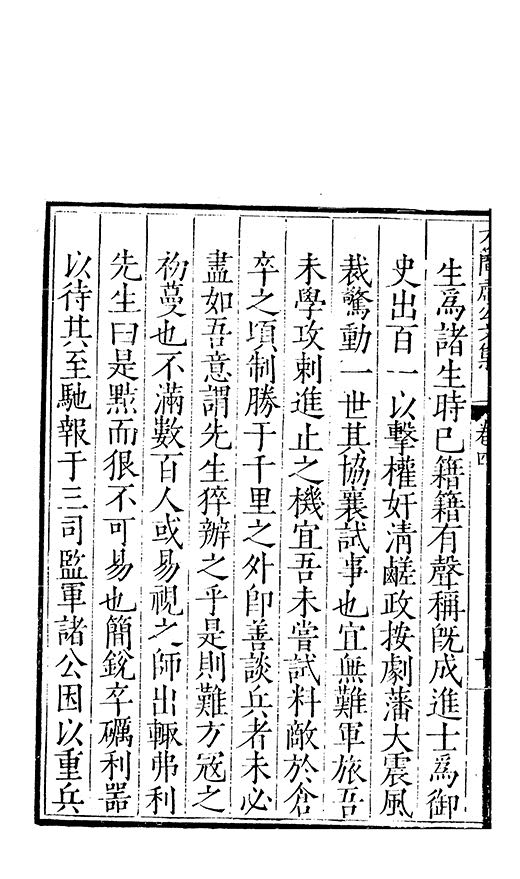 生爲諸生時已籍籍有聲稱旣成進士爲御
史出百一以擊權奸清鹺政按劇藩大震風
裁驚動一世其協襄試事也宜無難軍旅吾
未學攻剌進止之機宜吾未嘗試料敵於倉
卒之頃制勝于千里之外卽善談兵者未必
盡如吾意謂先生猝辦之乎是則難方寇之
初蔓也不滿數百人或易視之師出輙弗利
先生曰是㸃而狠不可易也簡銳卒礪利器
以待其至馳報于三司監軍諸公因以重兵
卷四